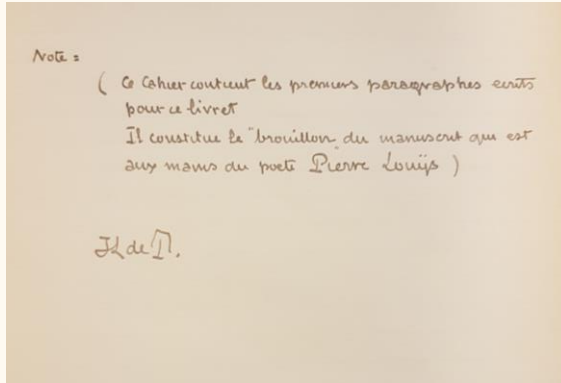 Note :
( Ce Cahier contient les premiers paragraphes ecrits
pour ce livret
Il constitue le "brouillon" du manuscrit que est
aux mains du poete Pierre Louÿs )
de